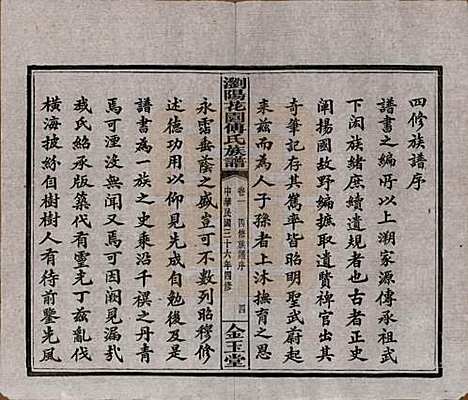 四修族譜序
譜書之編所以上溯家源傳承祖武
下闊族緒庶續遺規者也古者正史
闡揚國故野編摭取遺賢稗官出其
奇筆記存其雋率皆昭明聖武蔚起
來茲而為人子孫者上沐撫育之恩
瀏陽花園傅氏族譜
卷一
四修族譜序
四
中華民國三十六年四修
金玉堂
永霑垂蔭之盛豈可不數列昭穆修
述德功用以仰見先成自勉後及是
譜書為一族之史乘沿千禩之丹青
焉可湮没無聞又焉可因闕見漏哉
我氏紹承版築代有雯光丁茲亂伐
橫海披紛自樹樹人有待前鑒光風